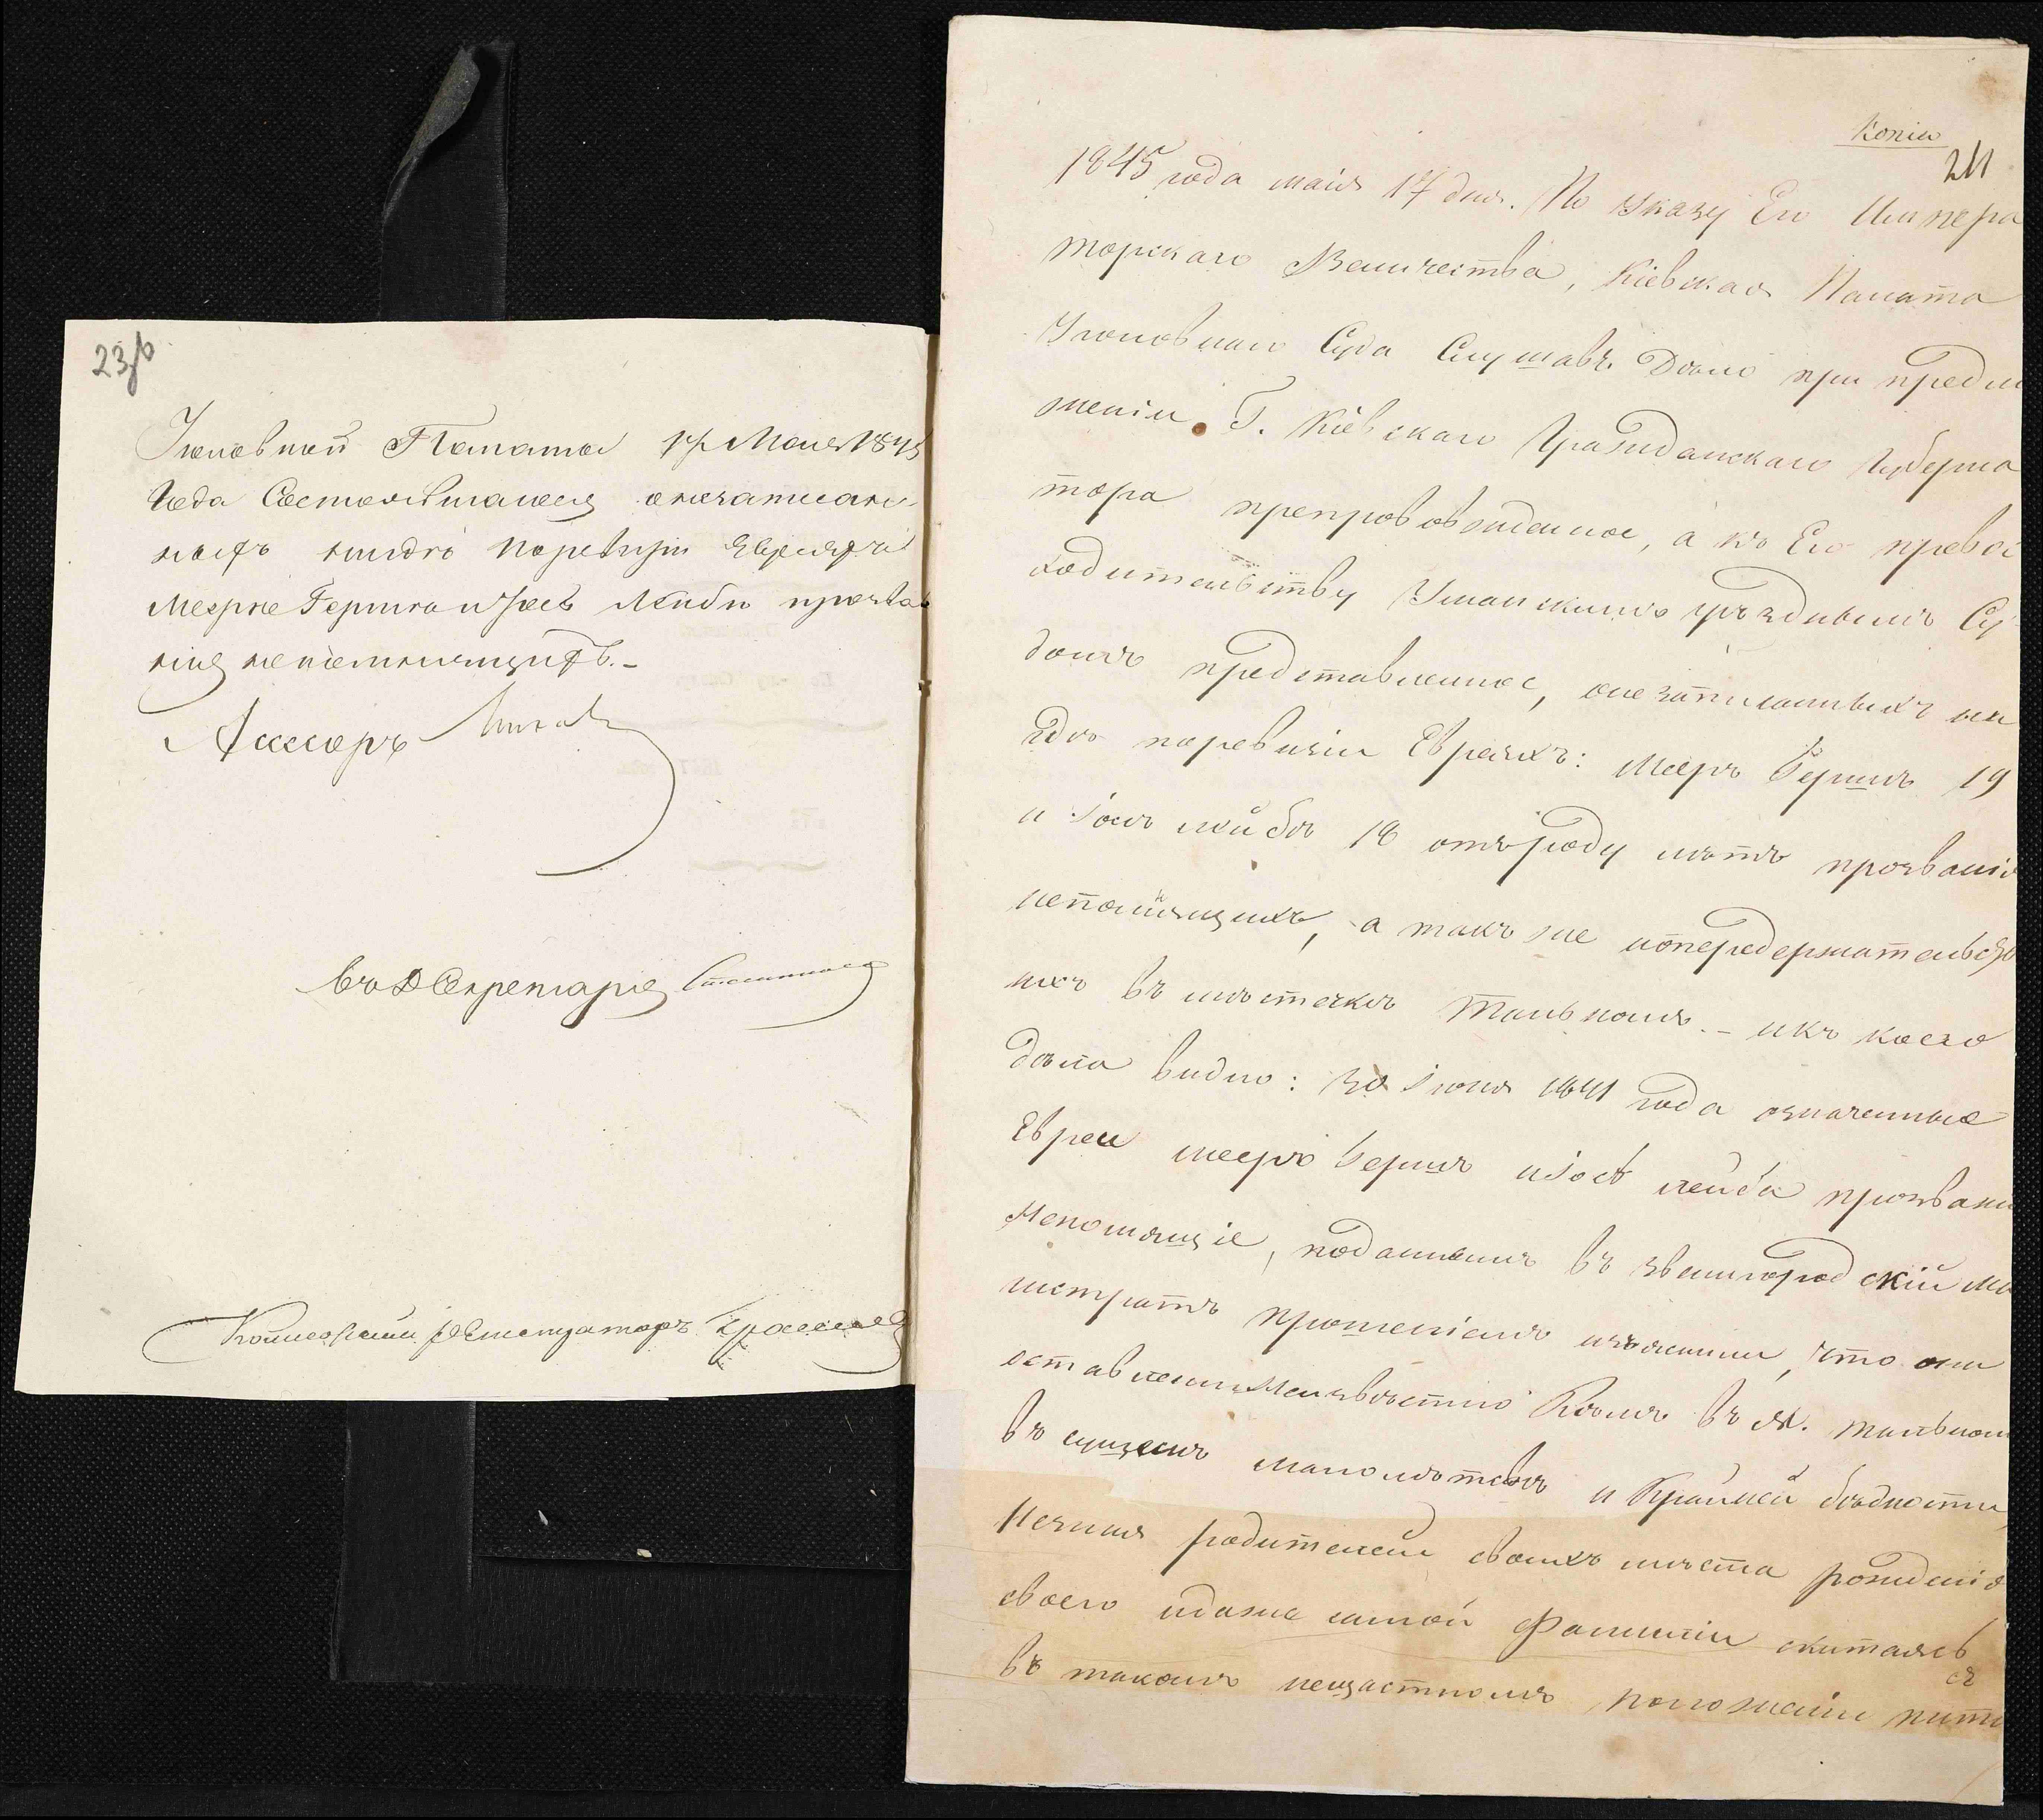 23об
Уголовной Палаты 17 Мая 1845
Года Состоявшагося о незаписан-
ныхъ нигдѣ поревизіи Евреяхъ
Меерѣ Гершкѣ и Іосѣ Лейбѣ прозва
нія непомнящихъ.-
Ассесоръ
Въ Д Секретаря
Коллежскій регистраторъ
Копія
24
1845 года маія 17 дня. По Указу Его Импера
торскаго Величества, Кіевская Палата
Уголовнаго Суда Слушавъ Дѣло при предло
женіи Г. Кіевскаго Гражданскаго Губерна
тора препровожденное, а къ Его превос
ходительству Уманскимъ уѣзднымъ Су
домъ представленное, онезаписанныхъ ни
гдѣ поревизіи Евреяхъ: Меерѣ Гершѣ 19
и Іосѣ лейбѣ 18 отъ роду лѣтъ прозванія
непомнящихъ, а такъ же ипередержательствѣ
ихъ въ мѣстечкѣ Тальномъ. - изъ коего
дѣла видно: 30 Іюня 1841 года означенные
Евреи мееръ Гершъ иІось лейба прозванія
Непомнящіе, поданнымъ въ звенигородскій ма
гистратъ прошеніемъ изъяснили, что они
оставлены Неизвѣстно Кѣмъ въ М. тальномъ
въ сущемъ малолѣтствѣ и Крайней бѣдности,
Незная родителей своихъ мѣста рожденія
своего идаже самой Фамиліи скитаясь
въ такомъ нещастномъ положеніи съ
пяти